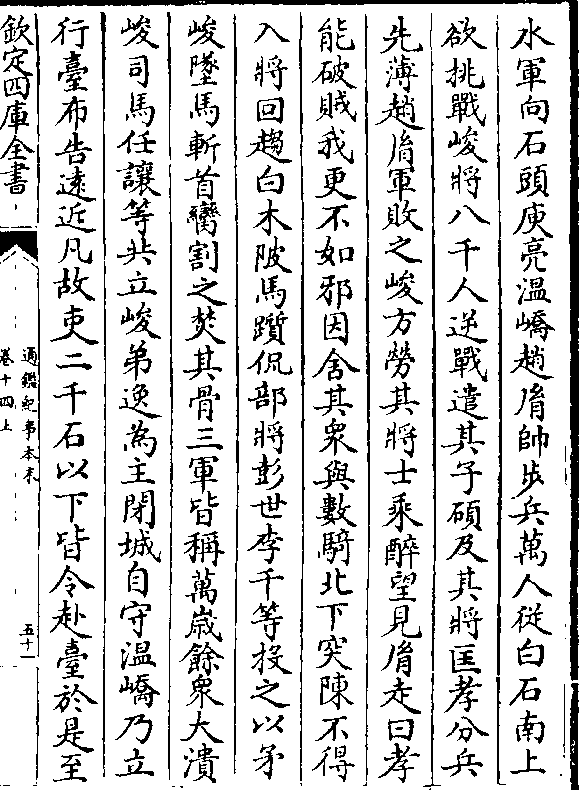 水軍向石頭庾亮溫嶠趙胤帥步兵萬人從白石南上
欲挑戰峻將八千人逆戰遣其子碩及其將匡孝分兵
先薄趙胤軍敗之峻方勞其將士乘醉望見胤走曰孝
能破賊我更不如邪因舍其衆與數騎北下突陳不得
入將回趨白木陂馬躓侃部將彭世李千等投之以矛
峻墜馬斬首臠割之焚其骨三軍皆稱萬歲餘衆大潰
峻司馬任讓等共立峻弟逸為主閉城自守溫嶠乃立
行臺布告遠近凡故吏二千石以下皆令赴臺於是至
欽定四庫全書
通鑑紀事本末
卷十四上
五十一